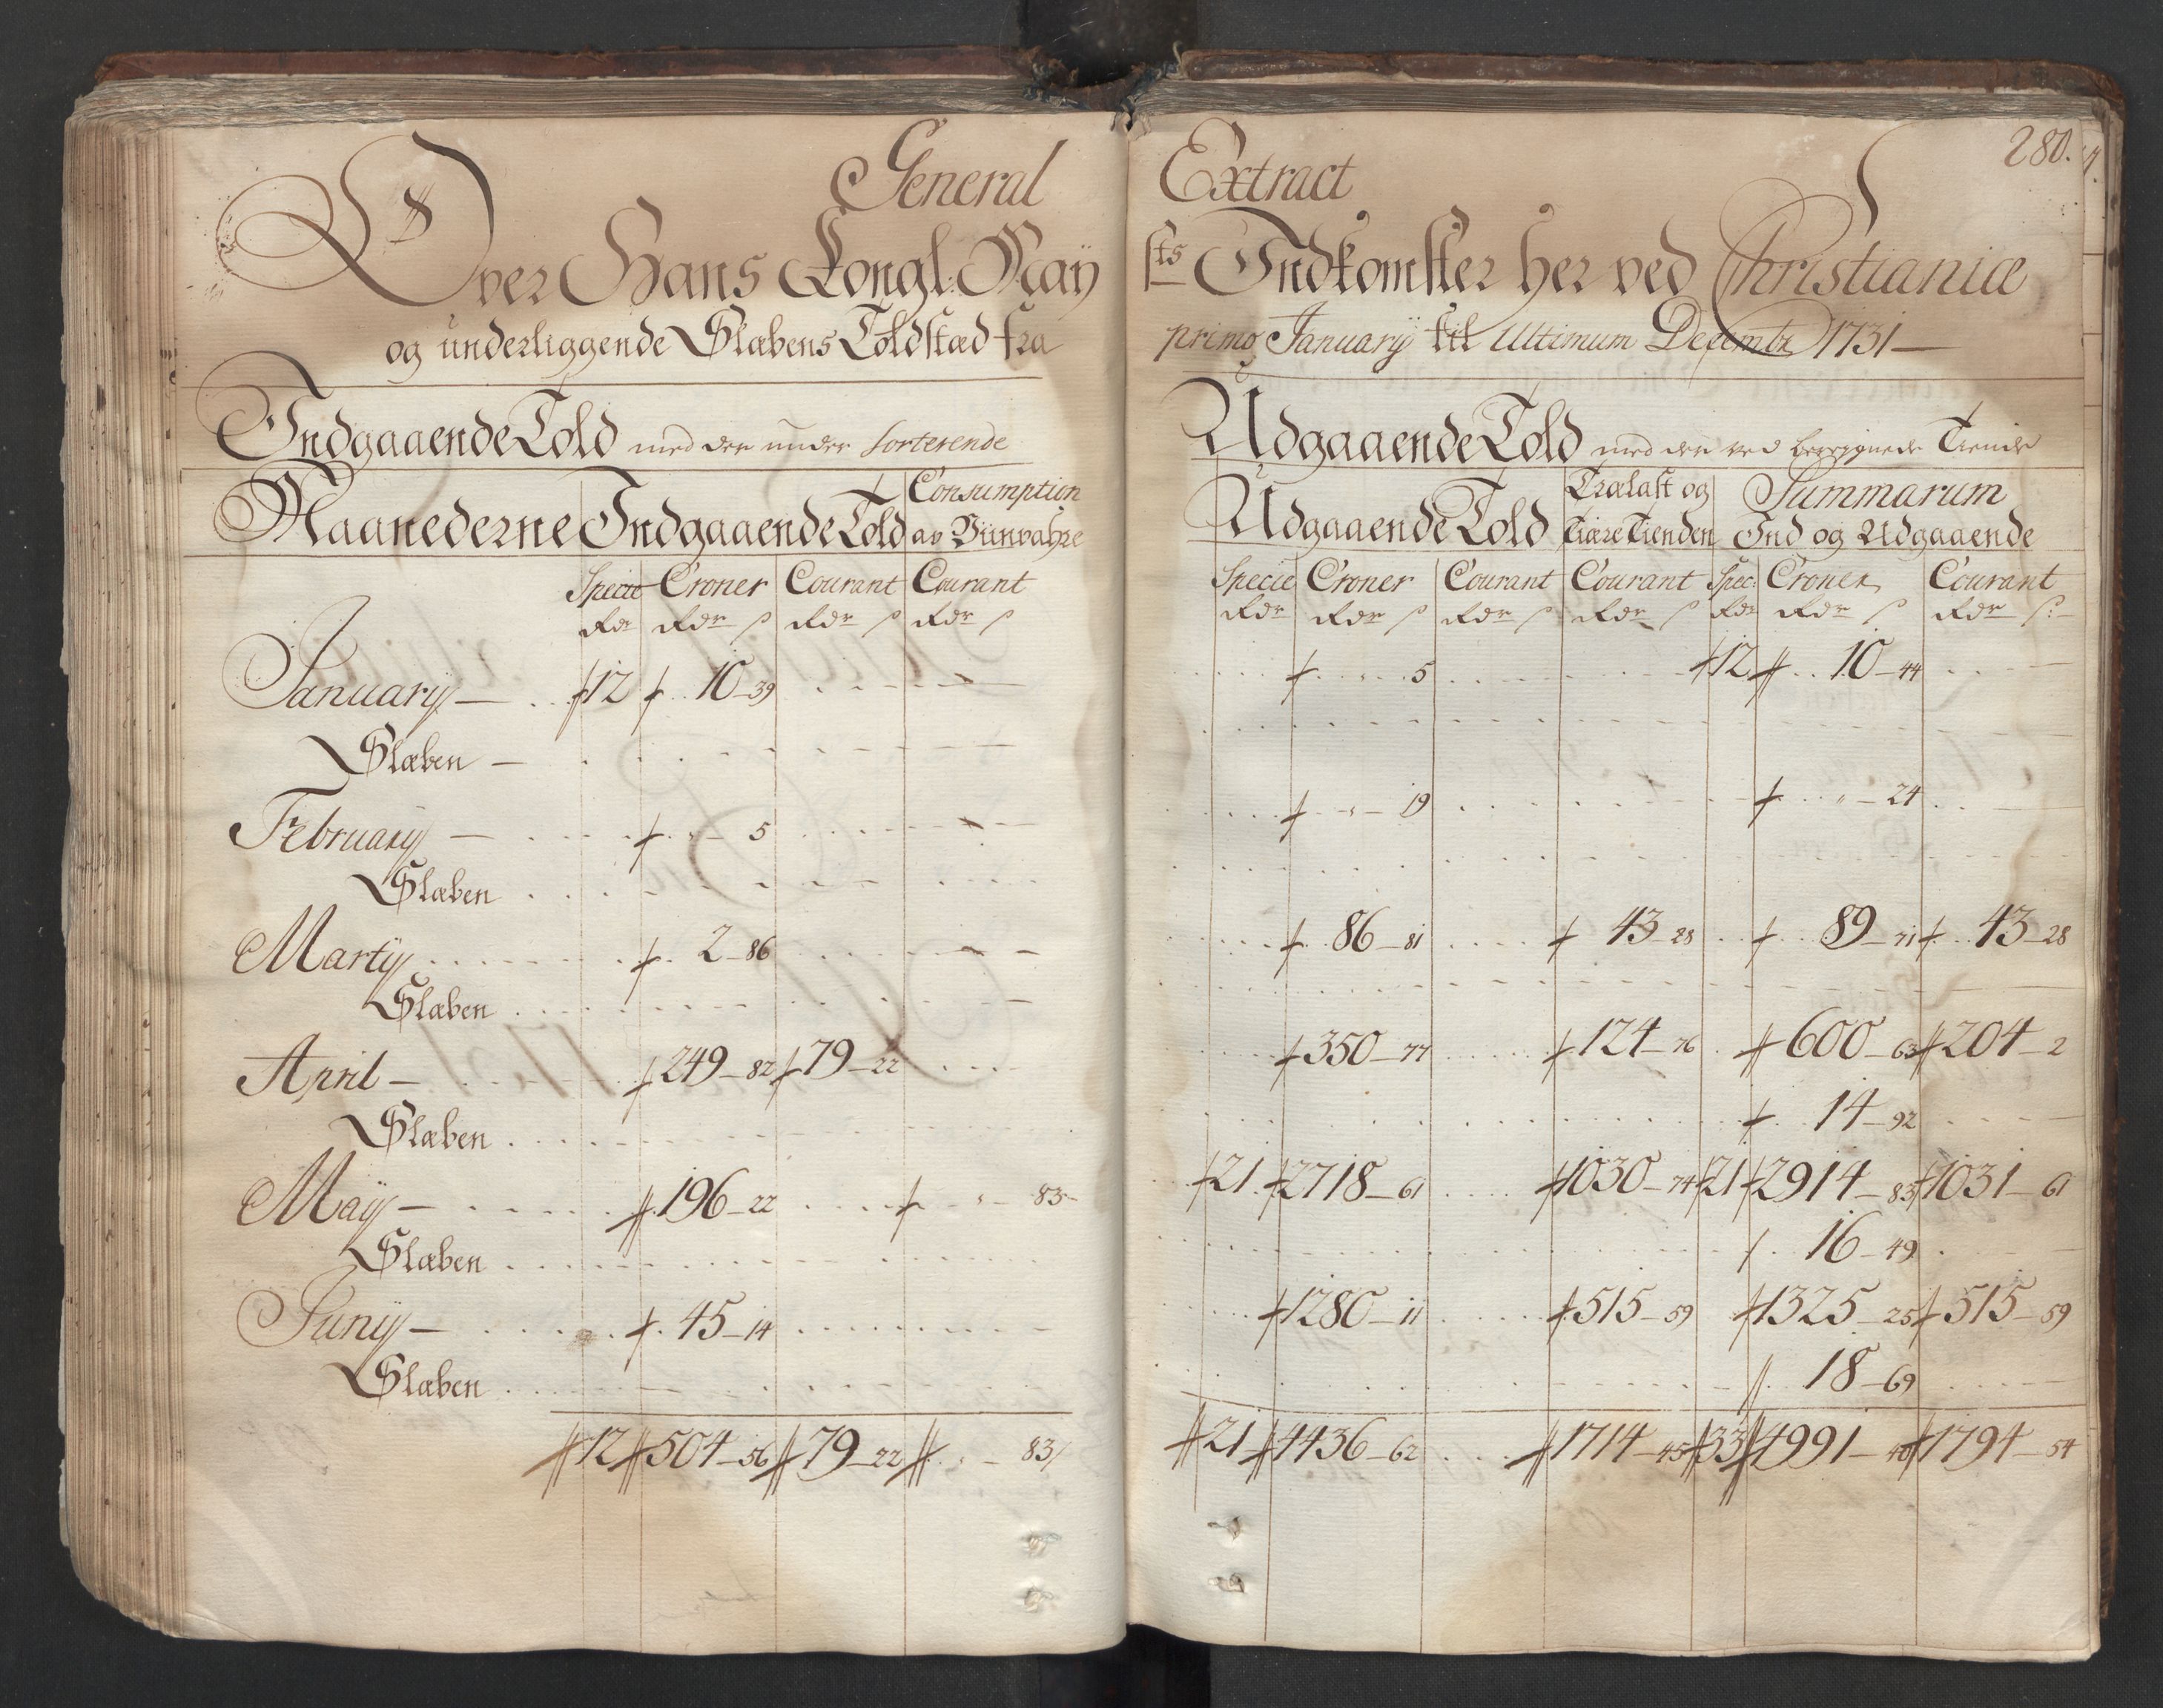 280.
General Extract
Over Hans Kongl. Maÿ sts Indkomster her ved Christianiæ
og underliggende Slæbens Toldstæd fra primo Januarÿ til Ultimum Decembr 1731 —
Indgaaende Told med den under Sorterende
Udgaaende Told med den ved beregnede Tiende
Maanederne Indgaaende Told Consumption av Viinvahre
Udgaaende Told Trælast og Tiære Tienden Summarum Ind og Udgaaende
Specie Croner Courant Courant Specie Croner Courant Courant Spec: Croner Courant
Rdr Rdr ß Rdr ß Rdr ß Rdr Rdr ß Rdr ß Rdr ß Rdr Rdr ß Rdr ß:
Januarÿ — 12 10 – 39 5 12 10 – 44
Slæben —
Februarÿ — 5 19 24
Slæben
Martÿ 2 – 86 86 – 81 43 – 28 89 – 71 43 – 28
Slæben
April — 249 – 82 79 – 22 350 – 77 124 – 76 600 – 63 204 – 2
Slæben 14 – 92
Maÿ — 196 – 22 83 – 21 2718 – 61 1030 – 74 21 2914 – 83 1031 – 61
Slæben 16 – 49
Junÿ — 45 – 14 1280 – 11 515 – 59 1325 – 25 515 – 59
Slæben 18 – 69
12 504 – 56 79 – 22 83 / 21 4436 – 62 1714 – 45 33 4991 – 40 1794 – 54